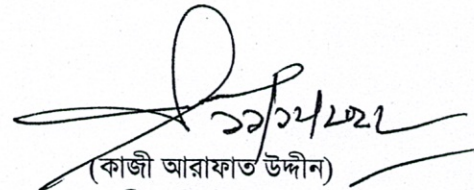 ১১/১২/২০২২
(কাজী আরাফাত উদ্দীন)